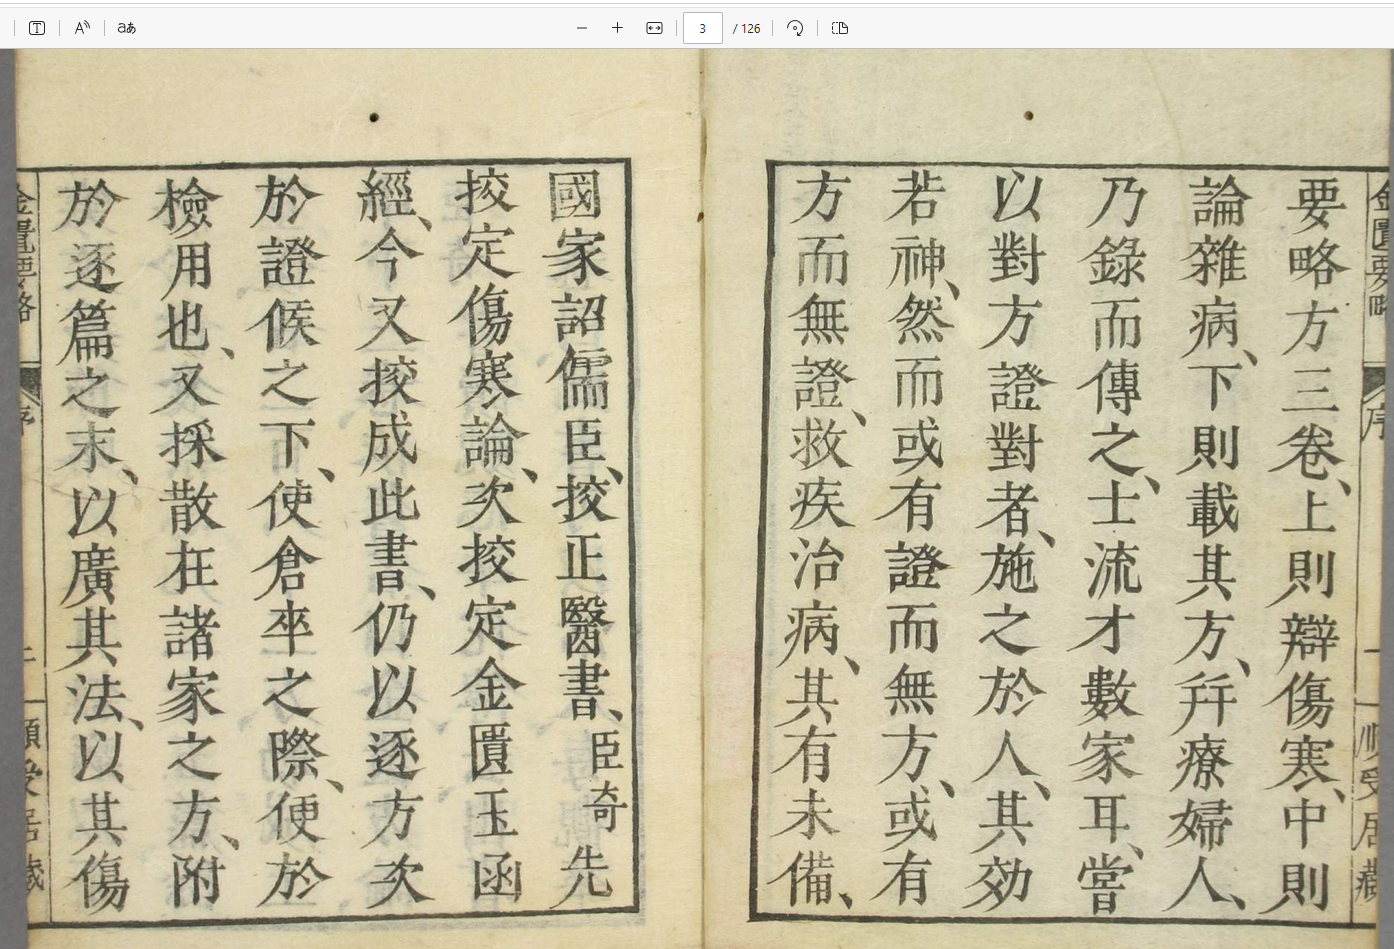 3 / 126
要略方三卷、上則辯傷寒、中則
論雜病、下則載其方、幷療婦人、
乃錄而傳之、士流才數家耳、嘗
以對方證對者、施之於人、其効
若神、然而或有證而無方、或有
方而無證、救疾治病、其有未備、
國家詔儒臣、挍正醫書、臣奇先
挍定傷寒論、次挍定金匱玉函
經、今又挍成此書、仍以逐方次
於證候之下、使倉卒之際、便於
檢用也、又採散在諸家之方、附
於逐篇之末、以廣其法、以其傷
金匱要略
序
一
順受居藏
金匱要略
序
二
順受居藏